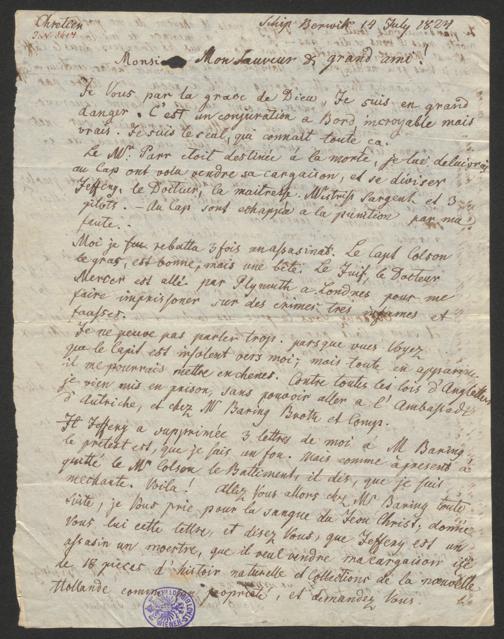 Chretien
Schip Berwik 14 July 1824
Monsi Mon Sauveur & grand ami!
Je Vous par la grace de Dieu, Je suis en grand
danger. C'est un conjuration a Bord incroyable mais
vrais. Je suis le seul, qui connait toute ca.
Le Mr. Parr etoit destinée à la morte, je lui
au Cap ont volu vendre sa cargaison, et se diviser
Jeffery, le Docteur, la maitresse Mistriss Sargent et 3
pilots. - Au Cap sont echappéa a la punition par ma
faute.
Moi je rebatta 3 fois un assasinat. Le Capt Colson
le gras, est bonne, mais une bête. Le Juif, le Docteur
Mercer est allé par Plymouth a Londres pour me
faire imprissoner sur des crimes tres infames et
faasses.
Je ne peuve pas parler trop. parsque vues Voyez
que le Capit est insolent vers moi; mais toute en apparence
il me pourrais mettre en chenes. Contre toutes les lois d'Angleterre
je vien mis en prison, sans pouvoir aller a l'Ambasade
d'Autriche, et chez Mr Baring Broth et Comp.
Jeffery a supprimée 3 lettres de moi a M Baring
le pretext est, que je sais un fou. Mais comme a present a
quitté le Mr Colson le Battiment, il dis, que je suis
mechante. Voila! Alez jous allors chez Mr Baring toute
suite, je Vous prie, pour la sangue du Jesu Christ, donnez
Vous lui cette lettre, et disez Vous, que Jeffery est un
assasin un moertre, que il veul vendre ma cargaison
de 18 pièces d'histoir naturelle et Collections de la nouvelle
Hollande comme propriété, et demandez Vous